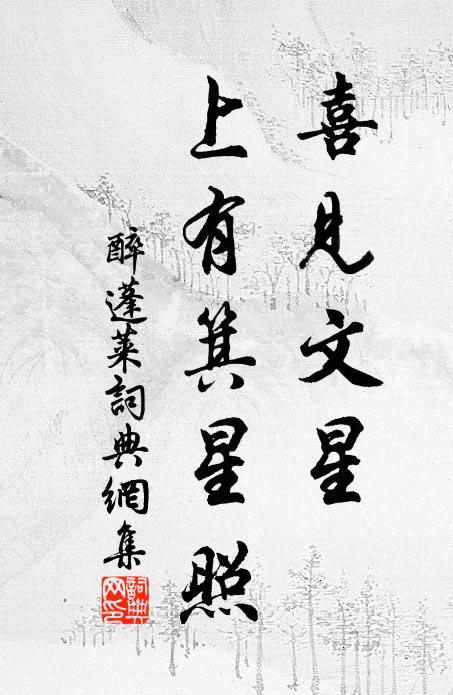 喜見文星
上有箕星照
醉蓬萊詞典網集
詞典网印